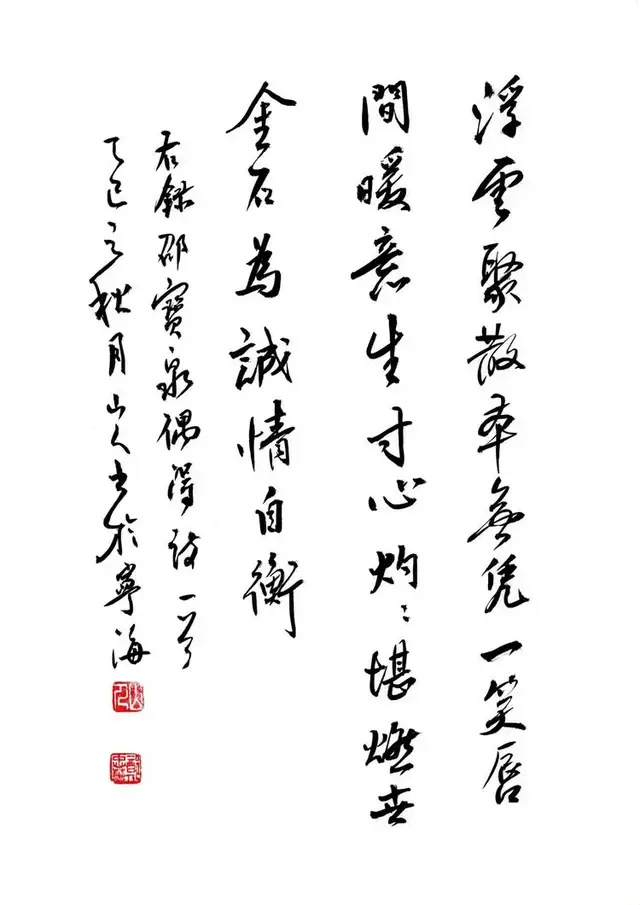 浮雲聚散本無凭一笑唇
間暖意生寸心灼〻堪燃世
金石為誠情自衡
右錄邵寶泉偶得詩一首
乙巳之秋月山人書於寧海